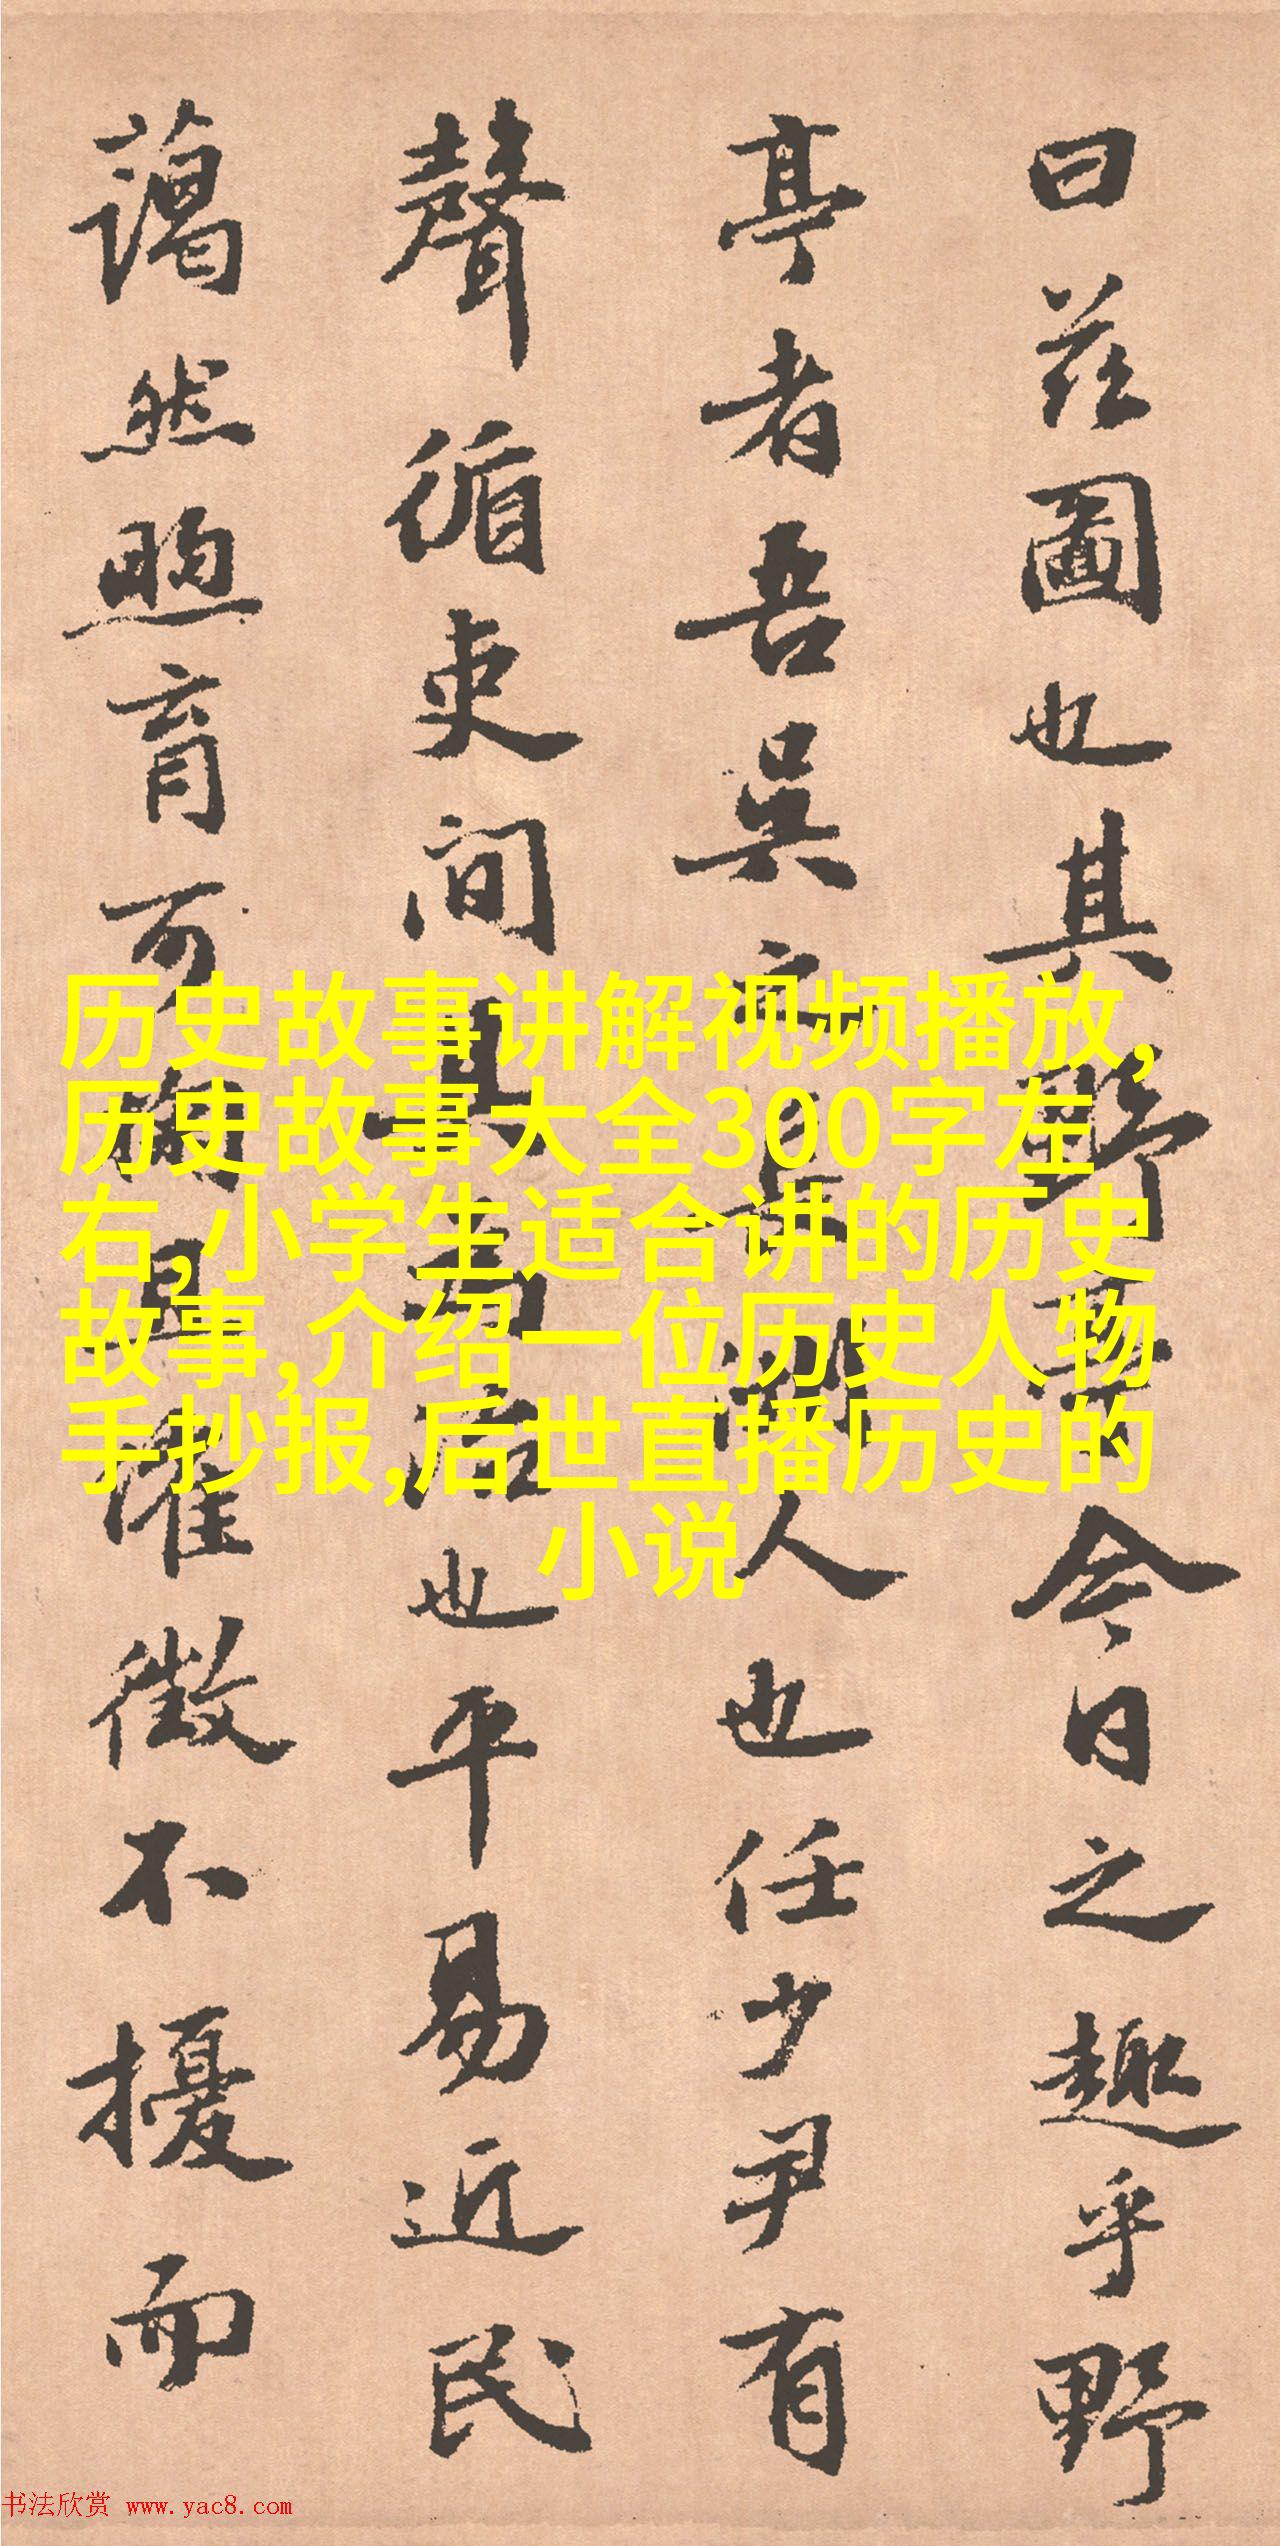 曰茲圖也其野亭今日之趣乎野
亭者吾吳人也任少尹有
聲循吏间其為治也平易近民
藹然煦育可且惟徵不擾而
历史故事讲解视频播放,
历史故事大全300字左
右,小学生适合讲的历史
故事,介绍一位历史人物
手抄报,后世直播历史的
小说
书法欣赏 www.yac8.com